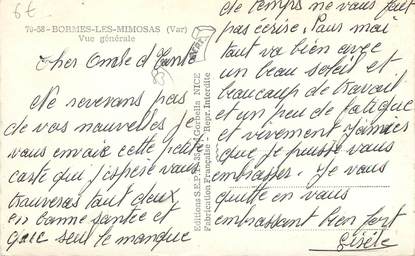 6€
79-58 - BORMES-LES-MIMOSAS (Var)
Vue générale
Cher Oncle et Tante
Ne recevans pas
de vos nouvelles je
vous envoie cette petite
carte que j'espère vous
trouveras tout deux
en bonne santée et
que seul le manque
Editions S.E.P.T. Gorbella NICE
Fabrication Française - Repr. Interdite
de temps ne vous fait
pas écrire. Pour moi
tout va bien avec
un beau soleil et
beaucoup de travail
et un peu de fatigue
et vivement Janvier
que je puisse vous
embrasser. Je vous
quitte en vous
embrassant bien fort
Gisèle